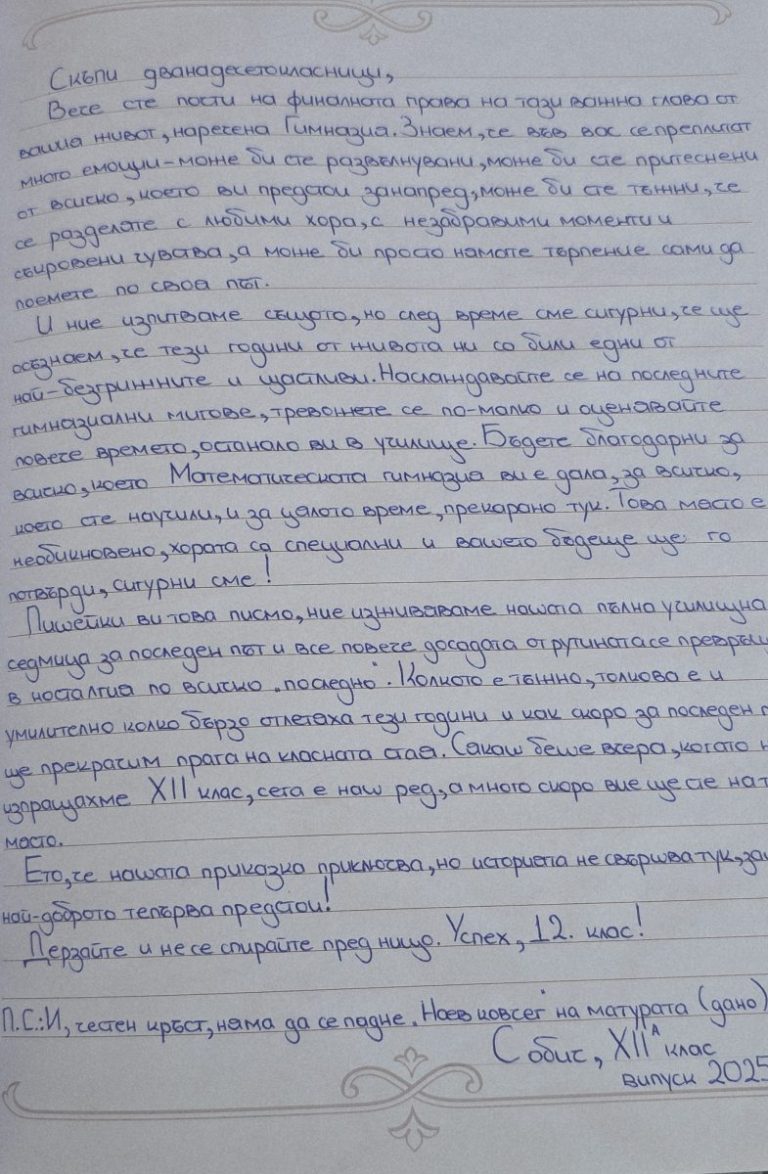 Скъпи дванадесетокласници,
Вече сте почти на финалната права на тази важна глава от
вашия живот, наречена Гимназия. Знаем, че във вас се преплитат
много емоции - може би сте развълнувани, може би сте притеснени
от всичко, което ви предстои занапред, може би сте тъжни, че
се разделяте с любими хора, с незабравими моменти и
съкровени чувства, а може би просто нямате търпение сами да
поемете по своя път.
И ние изпитваме същото, но след време сме сигурни, че ще
осъзнаем, че тези години от живота ни са били едни от
най-безгрижните и щастливи. Наслаждавайте се на последните
гимназиални мигове, тревожете се по-малко и оценявайте
повече времето, останало ви в училище. Бъдете благодарни за
всичко, което Математическата гимназия ви е дала, за всичко,
което сте научили, и за цялото време, прекарано тук. Това място е
необикновено, хората са специални и вашето бъдеще ще го
потвърди, сигурни сме!
Пишейки ви това писмо, ние изживяваме нашата пълна училищна
седмица за последен път и все повече досадата от рутината се превръщ
в носталгия по всичко "последно". Колкото е тъжно, толкова е и
умилително колко бързо отлетяха тези години и как скоро за последен п
ще прекрачим прага на класната стая. Сякаш беше вчера, когато н
изпращахме XII клас, сега е наш ред, а много скоро вие ще сте на т
място.
Ето, че нашата приказка приключва, но историята не свършва тук, за
най-доброто тепърва предстои!
Дерзайте и не се спирайте пред нищо. Успех, 12. клас!
П.С.: И, честен кръст, няма да се падне "Ноев ковчег" на матурата (дано)
Собис, XIIА клас
випуск 2025